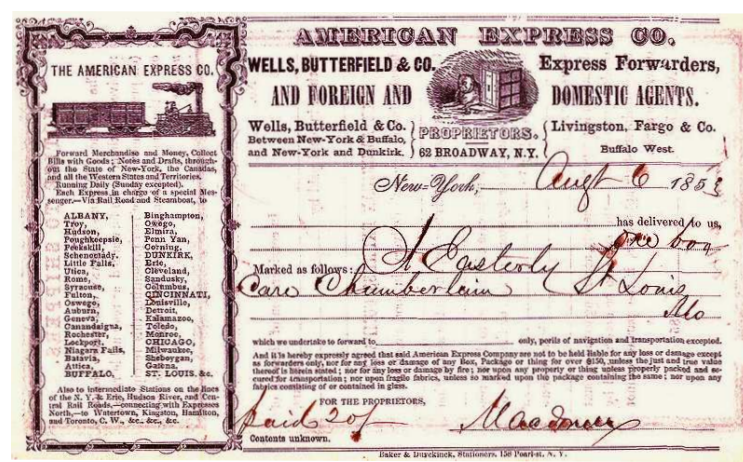 THE AMERICAN EXPRESS CO.
Forward Merchandise and Money, Collect
Bills with Goods; Notes and Drafts, through-
out the State of New-York, the Canadas,
and all the Western States and Territories.
Running Daily (Sunday excepted).
Each Express in charge of a special Mes-
senger.—Via Rail Road and Steamboat, to
ALBANY,
Troy,
Hudson,
Poughkeepsie,
Peekskill,
Schenectady,
Little Falls,
Utica,
Rome,
Syracuse,
Fulton,
Oswego,
Auburn,
Geneva,
Canandaigua,
Rochester,
Lockport,
Niagara Falls,
Batavia,
Attica,
BUFFALO,
Binghampton,
Owego,
Elmira,
Penn Yan,
Corning,
DUNKIRK,
Erie,
Cleveland,
Sandusky,
Columbus,
CINCINNATI,
Louisville,
Detroit,
Kalamazoo,
Toledo,
Monroe,
CHICAGO,
Milwaukee,
Sheboygan,
Galena,
ST. LOUIS, &c.
Also to intermediate Stations on the lines
of the N. Y. & Erie, Hudson River, and Cen-
tral Rail Roads,—connecting with Expresses
North,—to Watertown, Kingston, Hamilton,
and Toronto, C. W., &c., &c., &c.
AMERICAN EXPRESS CO.
WELLS, BUTTERFIELD & CO. Express Forwarders,
AND FOREIGN AND DOMESTIC AGENTS.
Wells, Butterfield & Co. PROPRIETORS. Livingston, Fargo & Co.
Between New-York & Buffalo,
and New-York and Dunkirk. 62 BROADWAY, N.Y. Buffalo West.
New-York, Augt 6 1853
has delivered to us,
one box
Marked as follows: A Easterly
Care Chamberlain St Louis
Mo
which we undertake to forward to only, perils of navigation and transportation excepted.
And it is hereby expressly agreed that said American Express Company are not to be held liable for any loss or damage except
as forwarders only, nor for any loss or damage of any Box, Package or thing for over $150, unless the just and true value
thereof is herein stated; nor for any loss or damage by fire; nor upon any property or thing unless properly packed and se-
cured for transportation; nor upon fragile fabrics, unless so marked upon the package containing the same; nor upon any
fabrics consisting of or contained in glass.
FOR THE PROPRIETORS,
paid 20/
Contents unknown.
Baker & Duyckinck, Stationers, 158 Pearl-st. N. Y.